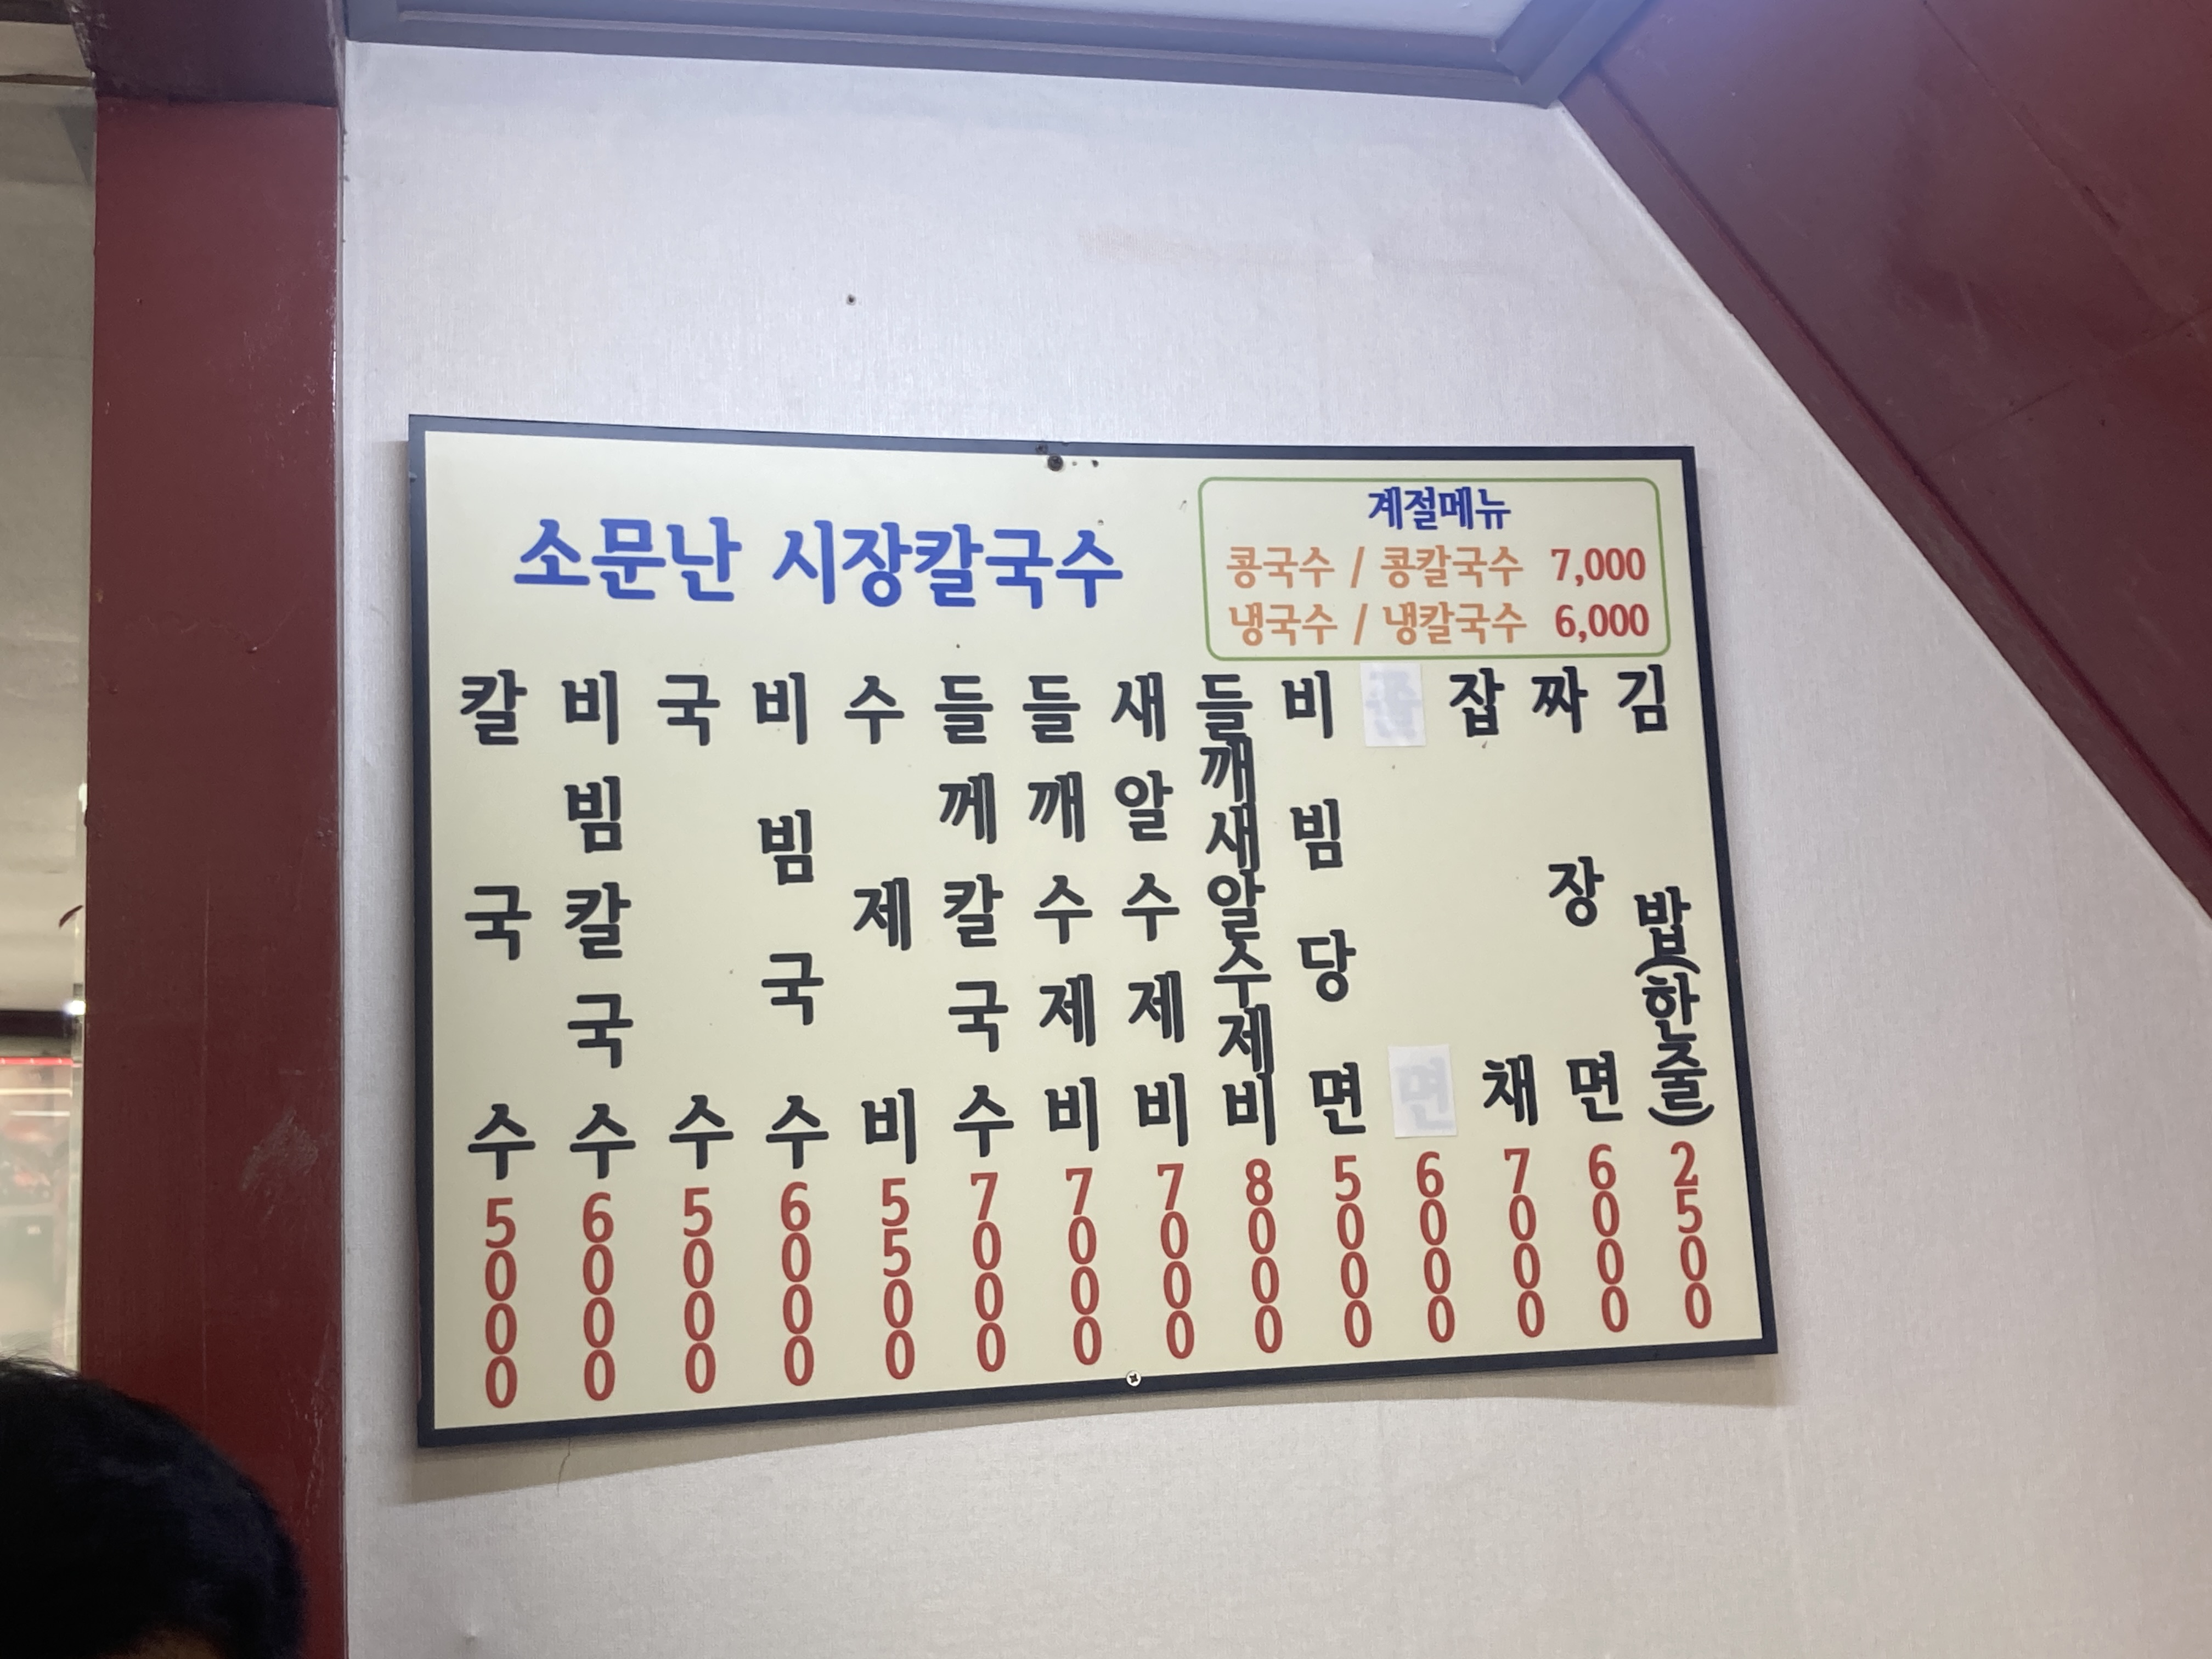 소문난 시장칼국수
계절메뉴
콩국수 / 콩칼국수 7,000
냉국수 / 냉칼국수 6,000
칼국수 5000
비빔칼국수 6000
국수 5000
비빔국수 6000
수제비 5500
들께칼국수 7000
들깨수제비 7000
새알수제비 7000
들깨새알수제비 8000
비빔당면 5000
쫄면 6000
잡채 7000
짜장면 6000
김밥(한줄) 2500